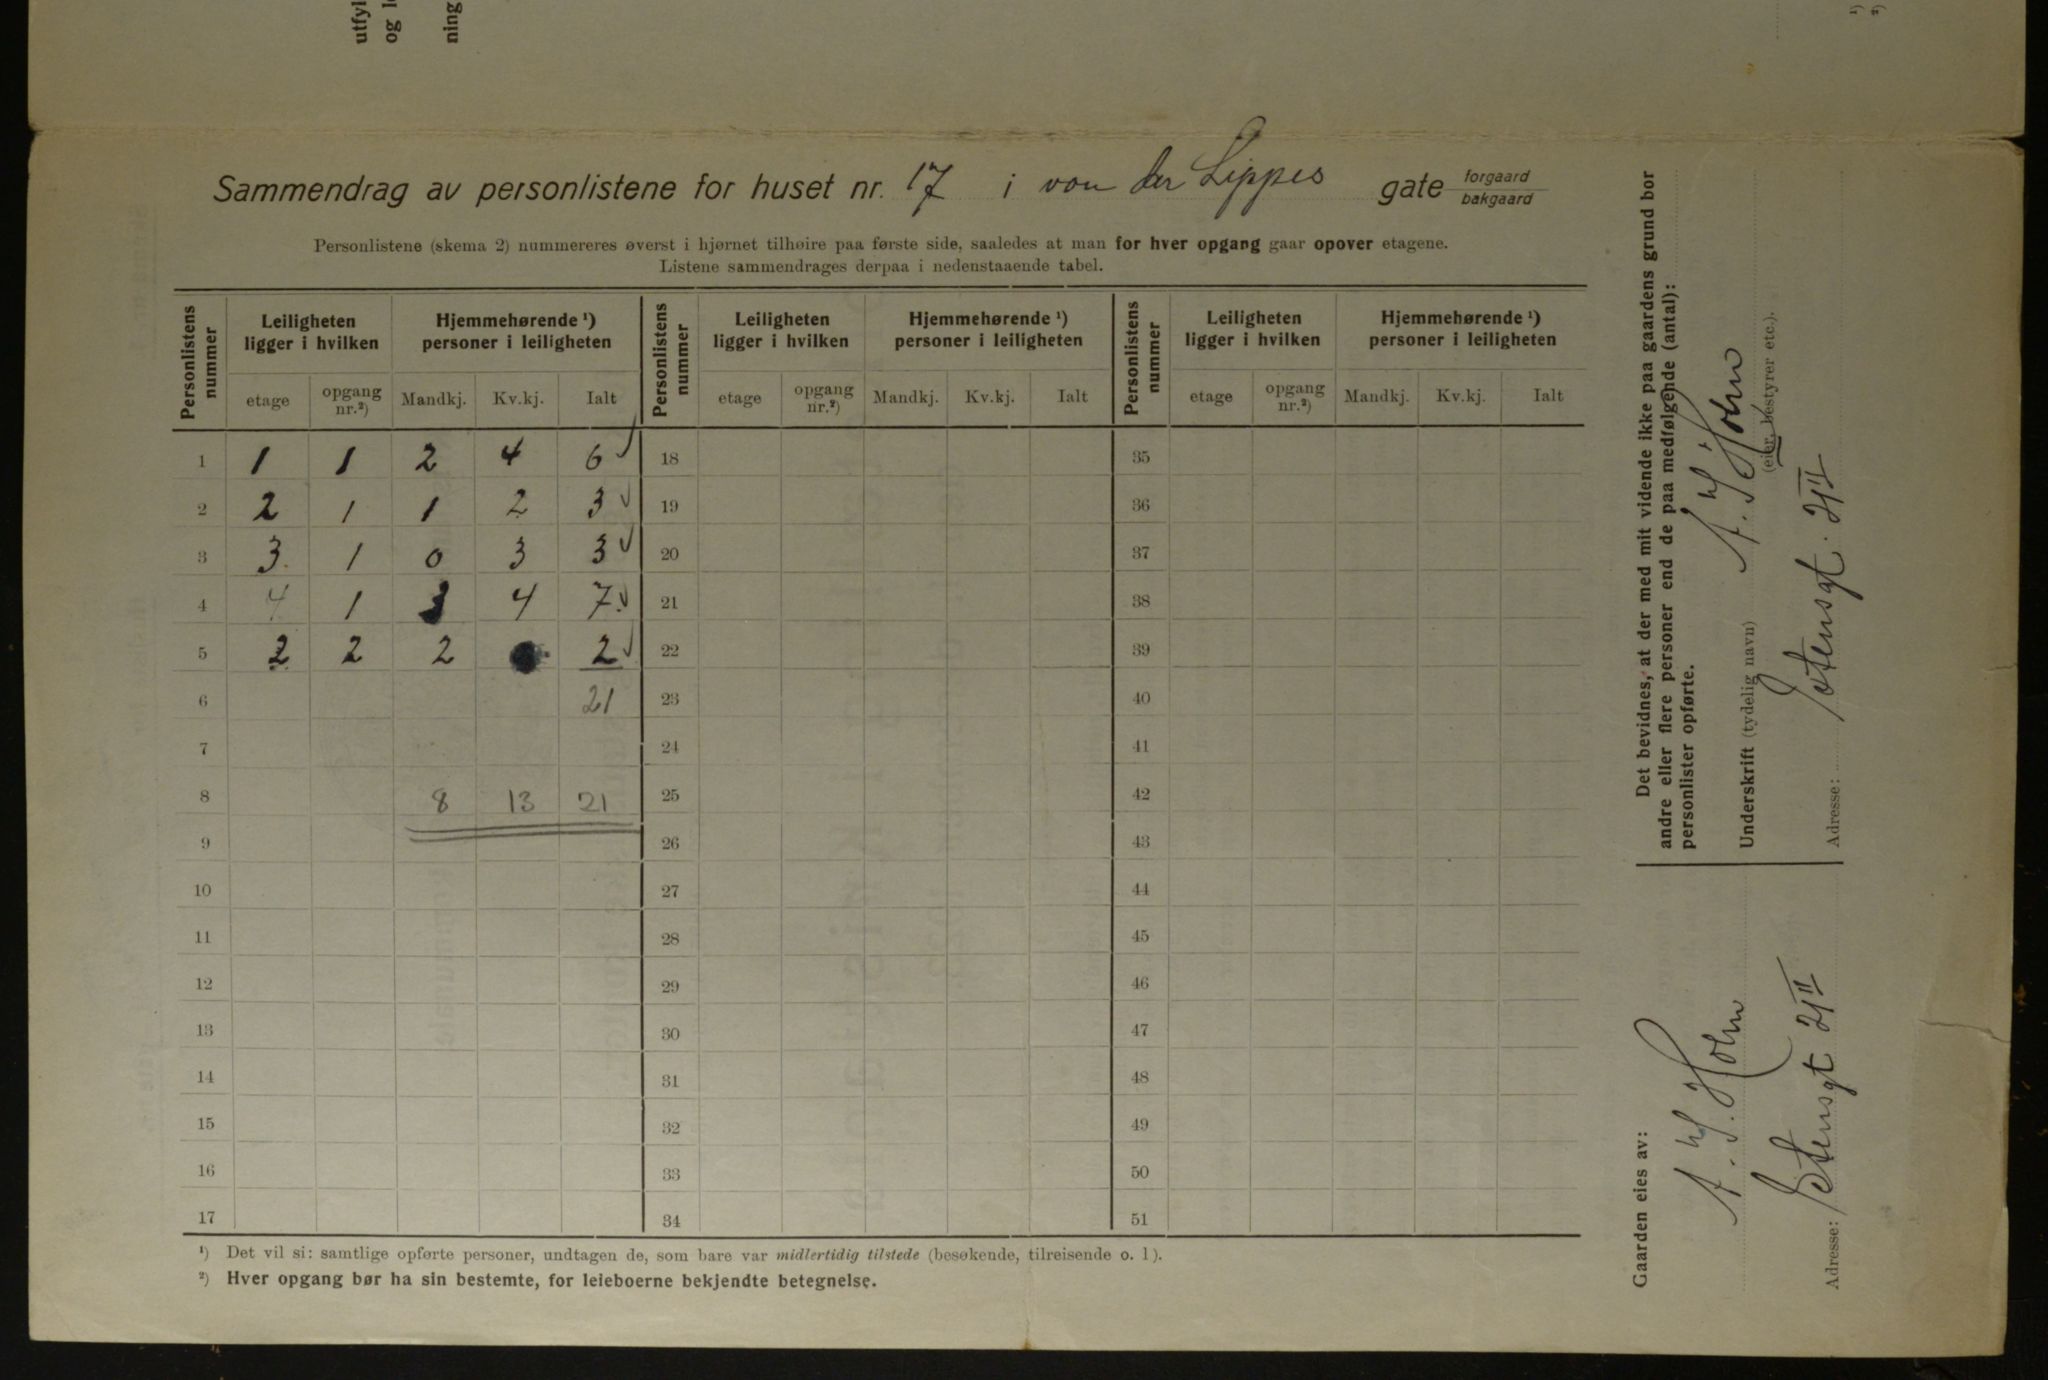 utfyl
og l
ning
¹)
²)
Sammendrag av personlistene for huset nr. 17 i von der Lippes gate forgaard
bakgaard
Personlistene (skema 2) nummereres øverst i hjørnet tilhøire paa første side, saaledes at man for hver opgang gaar opover etagene.
Listene sammendrages derpaa i nedenstaaende tabel.
Personlistens nummer | Leiligheten ligger i hvilken | Hjemmehørende ¹) personer i leiligheten | Personlistens nummer | Leiligheten ligger i hvilken | Hjemmehørende ¹) personer i leiligheten | Personlistens nummer | Leiligheten ligger i hvilken | Hjemmehørende ¹) personer i leiligheten
etage | opgang nr.²) | Mandkj. | Kv.kj. | Ialt | etage | opgang nr.²) | Mandkj. | Kv.kj. | Ialt | etage | opgang nr.²) | Mandkj. | Kv.kj. | Ialt
1 1 1 2 4 6 18 35
2 2 1 1 2 3 19 36
3 3 1 0 3 3 20 37
4 4 1 3 4 7 21 38
5 2 2 2 2 22 39
6 21 23 40
7 24 41
8 8 13 21 25 42
9 26 43
10 27 44
11 28 45
12 29 46
13 30 47
14 31 48
15 32 49
16 33 50
17 34 51
¹) Det vil si: samtlige opførte personer, undtagen de, som bare var midlertidig tilstede (besøkende, tilreisende o. l).
²) Hver opgang bør ha sin bestemte, for leieboerne bekjendte betegnelse.
Det bevidnes, at der med mit vidende ikke paa gaardens grund bor
andre eller flere personer end de paa medfølgende (antal):
personlister opførte.
Underskrift (tydelig navn) Holm
(eier, bestyrer etc.).
Adresse:
Gaarden eies av:
Holm
Adresse: